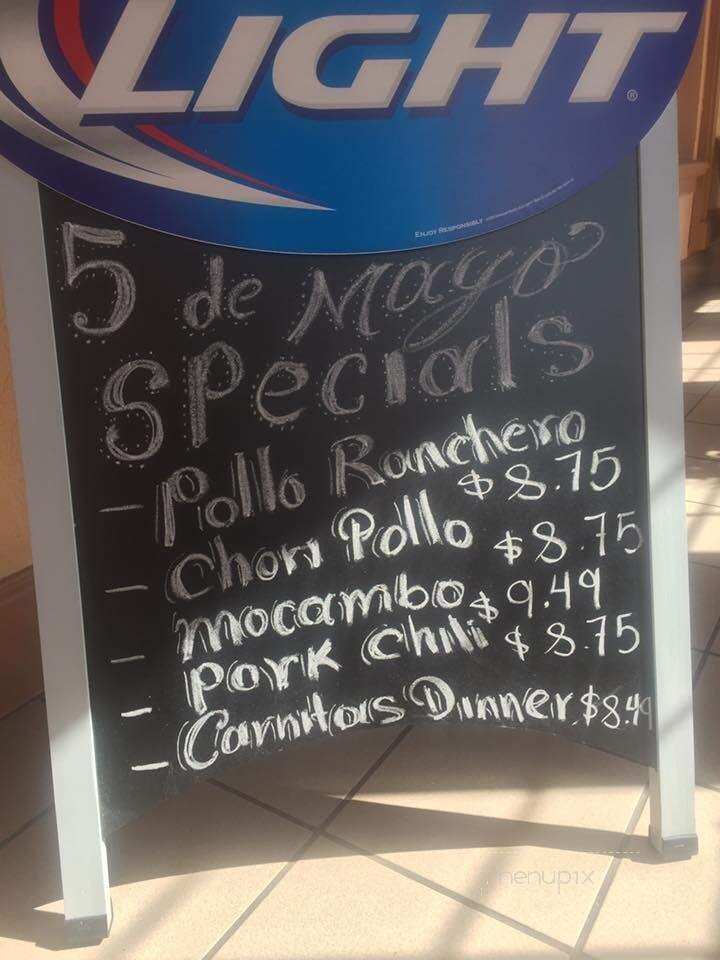 LIGHT
ENJOY RESPONSIBLY
5 de Mayo
Specials
- Pollo Ranchero
$8.75
- Chori Pollo $8.75
- Mocambo $9.49
- Pork Chili $8.75
- Carnitas Dinner $8.49
menupix